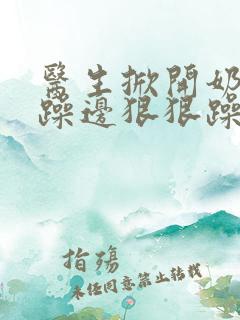 醫生掀開奶
躁邊狠狠躁
指殤
未任同意禁止转载